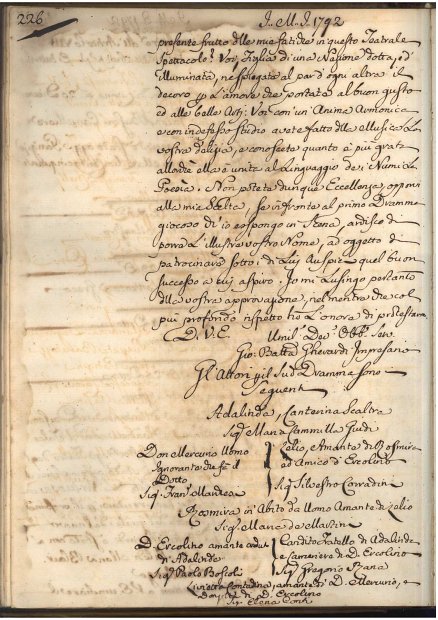 226
I. M. I. 1792
presente frutto delle mie fatiche in questo Teatrale
Spettacolo? Voi Figlia di una Nazione dotta, ed
Illuminata, ne spiegata al par d'ogni altra il
decoro p l'amore che portate al buon gusto
ed alle belle Arti: Voi con un'Anima Armonica
e con indefesso studio avete fatto della Musica la
vostra delizia, e conoscete quanto è più grata
allorchè ella è unita al Linguaggio dei Numi La
Poesia. Non potete dunque Eccellenza opporvi
alla mia Scelta, se in fronte al primo Dramma
giocoso ch'io espongo in Scena, ardisco di
porre L'illustre vostro Nome, ad oggetto di
patrocinare sotto di Lui Auspicj quel buon
successo a cui aspiro. Io mi Lusingo pertanto
della vostra approvazione, nel mentre che col
più profondo rispetto ho L'onore di protestarmi
D. V. E. Umil. Dev. Obb. Serv.
Gio: Batta Gherardi Impresario
Gl'Attori p il Sud. Dramma sono
Seguenti
Adalinda, Canterina Scaltra
Sig. Maria Cammilla Guidi
Don Mercurio Uomo
Ignorante che fa il
Dotto
Sig. Fran. Mandea
Lelio, Amante di Rosmira
ed Amico d'Ercolino
Sig. Silvestro Corradini
Rosmira in Abito da Uomo Amante di Lelio
Sig. Maria de Mastini
D. Ercolino amante
d'Adalinda
Sig. Paolo Boscoli
Candito Fratello di Adalinda
e Cameriere di D. Ercolino
Sig. Gregorio Bana
Contadina, amante di D. Mercurio, e
di D. Ercolino
Sig. Elena